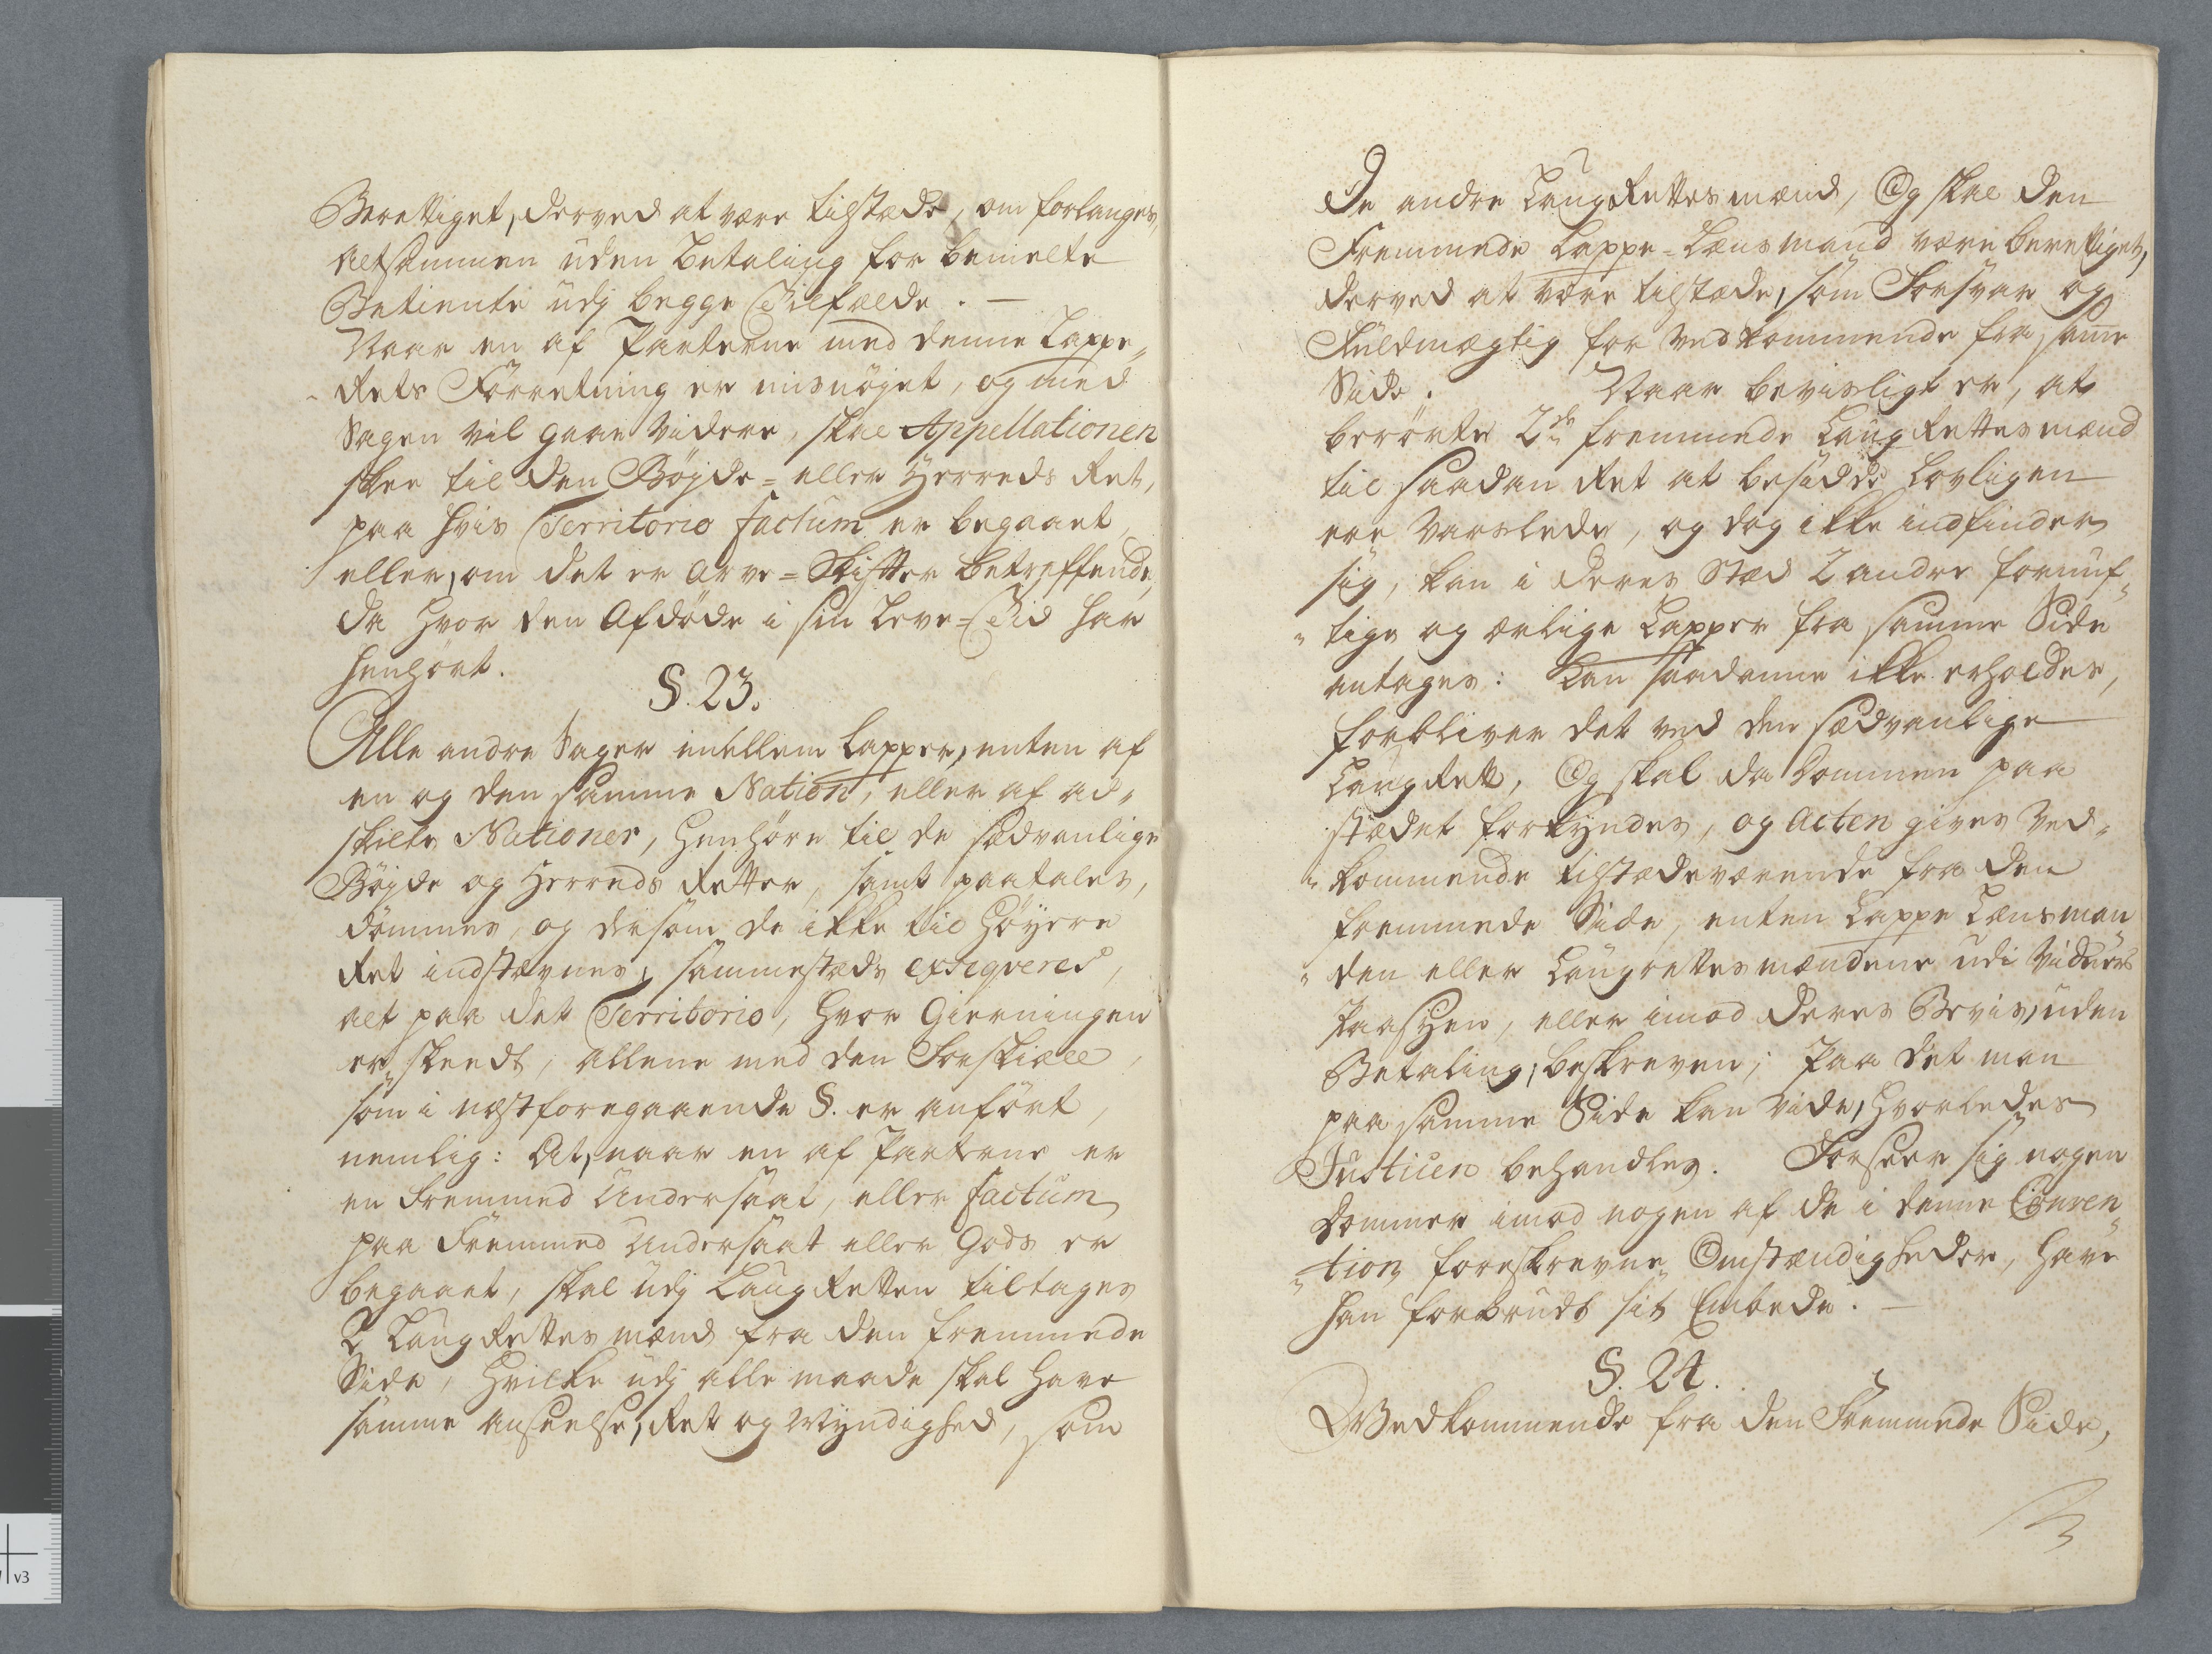 Berettiget, derved at være tilstæde, om forlanges,
altsammen uden Betaling for bemelte
Betiente udj begge Tilfælde. —
Naar en af Parterne med denne Lappe„
„Rets Forretning er misnöjet, og med
Sagen vil gaae videre, skal Appellationen
skee til den Bÿgde= eller Herreds Ret,
paa hvis Territorio factum er begaaet,
eller, om det er Arve=Skifter betreffende,
da hvor den Afdöde i sin Leve=Tid har
henhört.
§. 23.
Alle andre Sager imellem Lapper, enten af
en og den samme Nation, eller af ad„
skilte Nationer, henhöre til de sædvanlige
Bÿgde og Herreds Retter, samt paatales,
dömmes, og dersom de ikke til Höyere
Ret indstævnes, sammestæds exseqveres,
alt paa det Territorio, hvor Gierningen
er skeedt, allene med den Forskiæl,
som i næstforegaaende §. er anfört,
nemlig: At, naar en af Parterne er
en fremmed Undersaat, eller factum
paa fremmed Undersaat eller Gods er
begaaet, skal udj LaugRetten tiltages
2 LaugRettesmænd fra den fremmede
Side, hvilke udj alle maade skal have
samme anseelse, Ret og Myndighed, som
De andre LaugRettesmænd, Og skal den
Fremmede Lappe=Lænsmand være berettiget,
derved at være tilstæde, som Forsvar og
Fuldmægtig for vedkommende fra same
Side. Naar bevisligt er, at
berörte 2de fremmede LaugRettesmænd
til saadan Ret at besidde lovligen
ere varslede, og dog ikke indfinder
sig, kan i deres Stæd 2 andre fornuf„
„tige og ærlige Lapper fra samme Side
antages: Kan saadanne ikke erholdes,
forbliver det ved den sædvanlige
LaugRett, Og skal da Dommen paa
stædet forkyndes, og Acten gives Ved„
„kommende tilstædeværende fra den
fremmede Side, enten Lappe Lænsman
„den eller Laugrettesmændene udi Vidners
Paasyn, eller imod deres Bevis, uden
Betaling, beskreven; Paa det man
paa samme Side kan vide, hvorledes
Justicen behandles. Forseer sig nogen
Dommer imod nogen af de i denne Conven„
„tion foreskrevne Omstændigheder, have
han forbrudt sit Embede. —
§. 24.
Vedkommende fra den Fremmede Side,